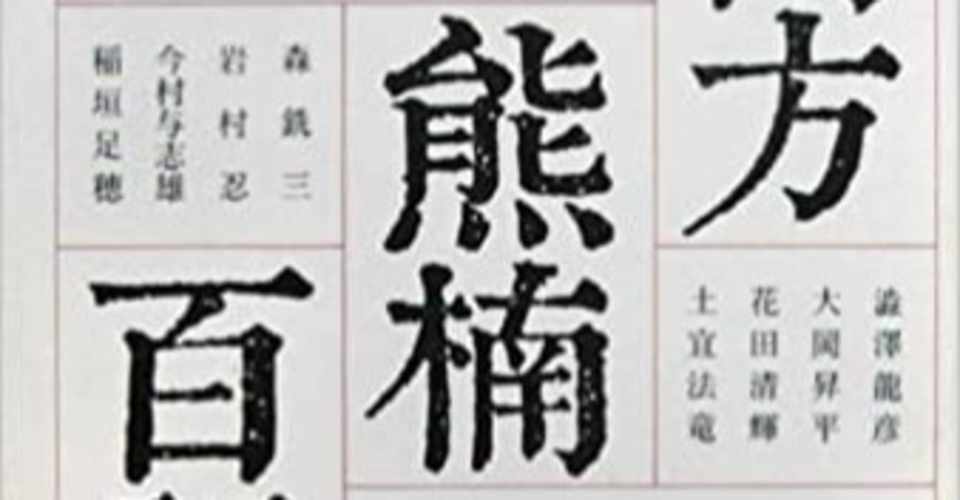 方
澁澤龍彦
大岡昇平
花田清輝
土宜法竜
熊楠
森銑三
岩村忍
今村与志雄
稲垣足穂
百